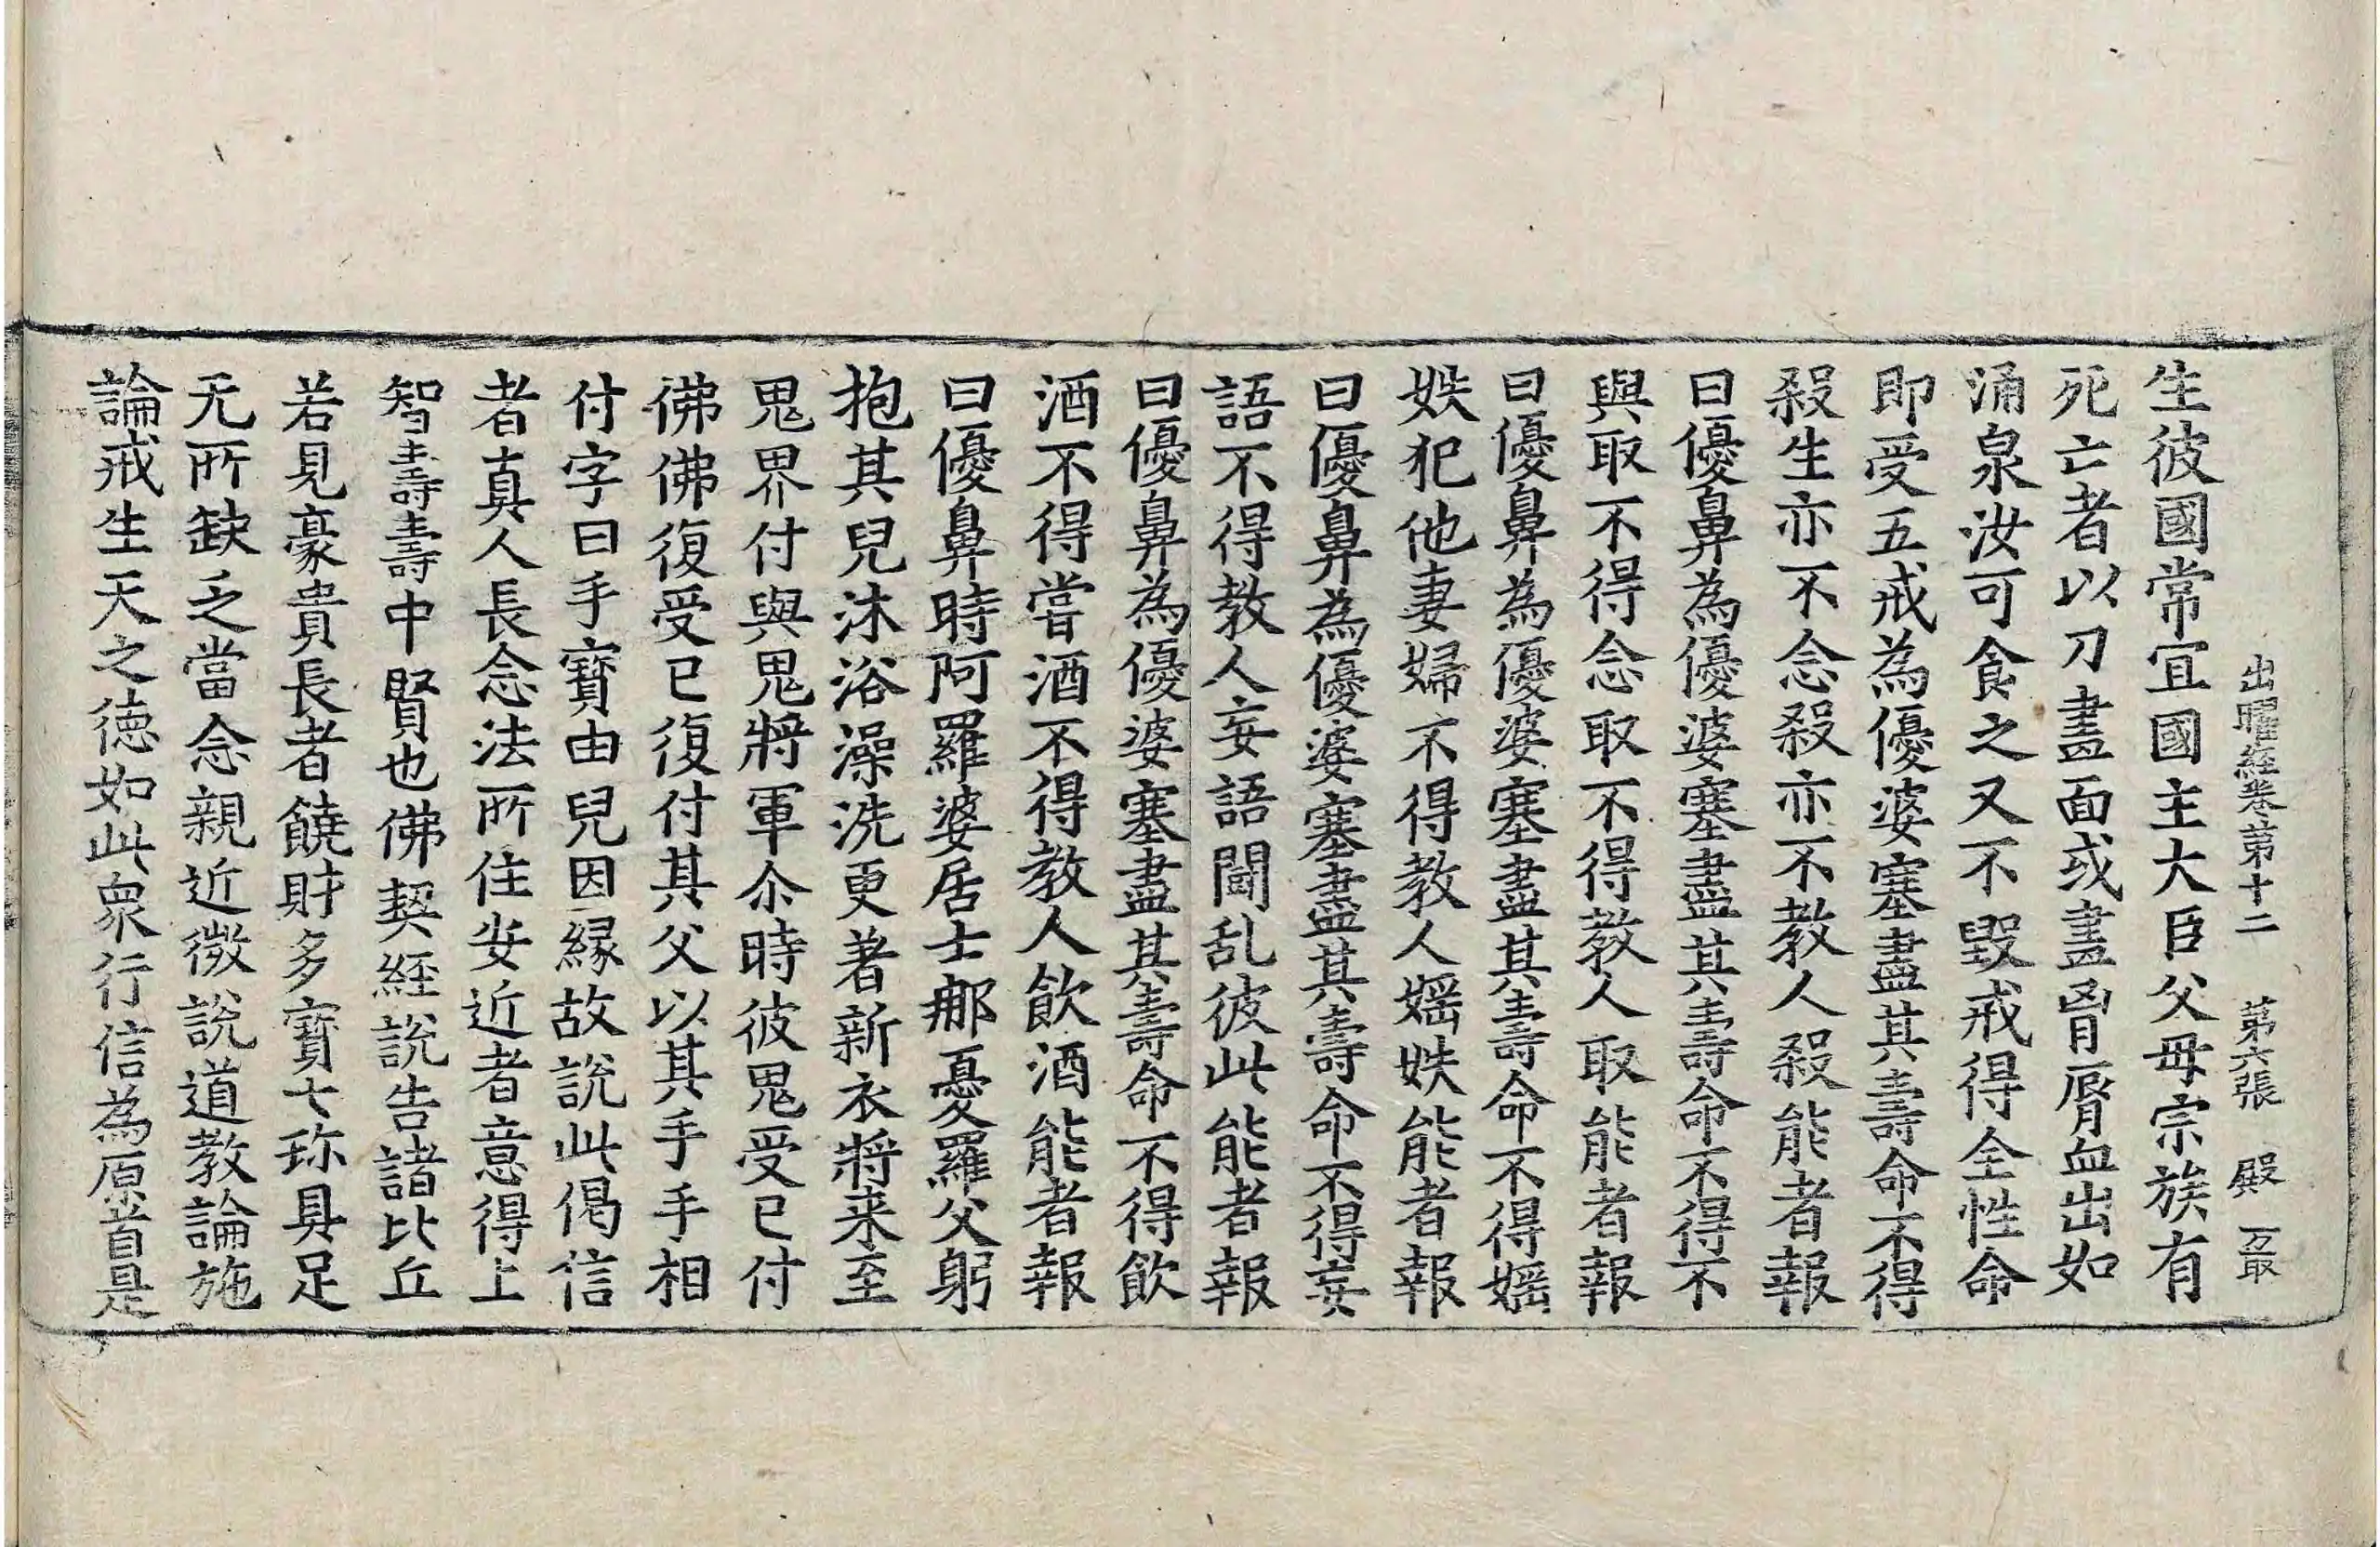 出曜経卷第十二　第六張　殿　万最
生彼國常宜國主大臣父母宗族有
死亡者以刀畫面或畫胷脣血出如
涌泉汝可食之又不毀戒得全性命
即受五戒為優婆塞盡其壽命不得
殺生亦不念殺亦不教人殺能者報
曰優鼻為優婆塞盡其壽命不得不
與取不得念取不得教人取能者報
曰優鼻為優婆塞盡其壽命不得婬
妷犯他妻婦不得教人婬妷能者報
曰優鼻為優婆塞盡其壽命不得妄
語不得教人妄語闘乱彼此能者報
曰優鼻為優婆塞盡其壽命不得飲
酒不得嘗酒不得教人飲酒能者報
曰優鼻時阿羅婆居士郍憂羅父躬
抱其兒沐浴澡洗更著新衣將来至
鬼界付與鬼將軍尒時彼鬼受已付
佛佛復受已復付其父以其手手相
付字曰手寶由兒因縁故說此偈信
者真人長念法所住安近者意得上
智壽壽中賢也佛契経說告諸比丘
若見豪貴長者饒財多寶七珎具足
无所缺乏當念親近微說道教論施
論戒生天之徳如此衆行信為原首是